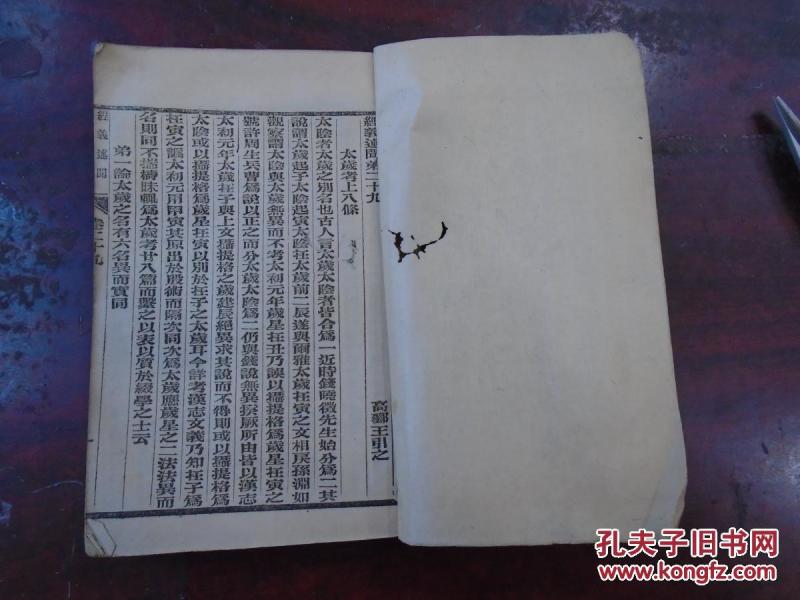 經義述聞弟二十九
高郵王引之
太歲考上八條
太陰者太歲之別名也古人言太歲太陰者皆合爲一近時錢曉徵先生始分爲二其
說謂太歲起子太陰起寅太陰在太歲前二辰遂與爾雅太歲在寅之文相戾孫淵如
觀察謂太陰與太歲無異而不考太初元年歲星在丑乃誤以攝提格爲歲星在寅之
號許周生兵曹爲說以正之而分太歲太陰爲二仍與錢說無異揆厥所由皆以漢志
太初元年太歲在子與上文攝提格之歲建辰絕異求其說而不得則或以攝提格爲
太陰或以攝提格爲歲星在寅以別於在子之太歲耳今詳考漢志文義乃知在子爲
在寅之譌太初元用甲寅其原出於殷術而隔次同次爲太歲應歲星之二法法異而
名則同不揣檮昧輒爲太歲考廿八篇而繫之以表以質於綴學之士云
弟一論太歲之名有六名異而實同
經義述聞
卷二十九
孔夫子旧书网
www.kongfz.com